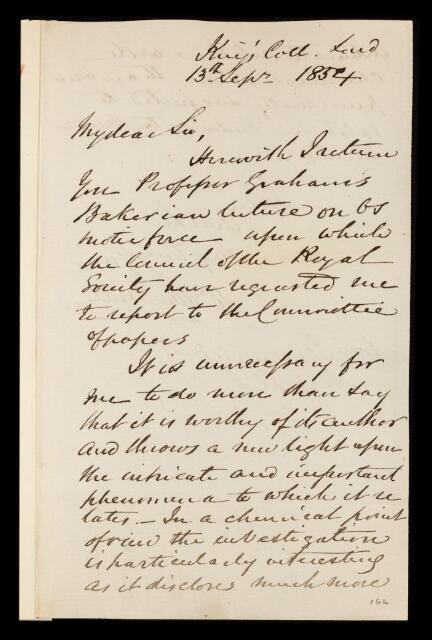 King's Coll. Lond
13th Sepr 1854
My dear Sir,
Herewith I return
you Professor Graham's
Bakerian lecture on Os
motic force upon which
the Council of the Royal
Society have requested me
to report to the Committee
of papers
It is unnecessary for
me to do more than say
that it is worthy of its author
and throws a new light upon
the intricate and important
phenomena to which it re
lates. – In a chemical point
of view the investigation
is particularly interesting
as it discloses much more
166